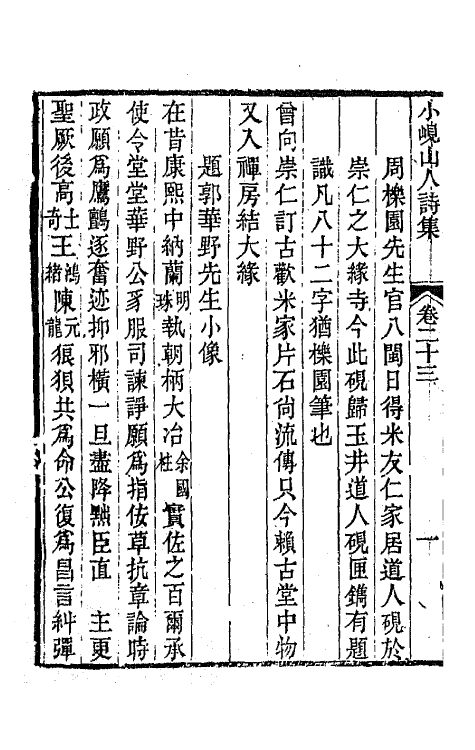 小峴山人詩集 卷二十三 一
周櫟園先生官八閩日得米友仁家居道人硯於
崇仁之大緣寺今此硯歸玉井道人硯匣鐫有題
識凡八十二字猶櫟園筆也
曾向崇仁訂古歡米家片石尙流傳只今賴古堂中物
又入禪房結大緣
題郭華野先生小像
在昔康熙中納蘭明珠執朝柄大冶余國柱實佐之百爾承
使令堂堂華野公豸服司諫諍願爲指佞草抗章論時
政願爲鷹鸇逐奮迹抑邪橫一旦盡降黜臣直 主更
聖厥後高士奇王鴻緒陳元龍狼狽共爲命公復爲昌言糾彈